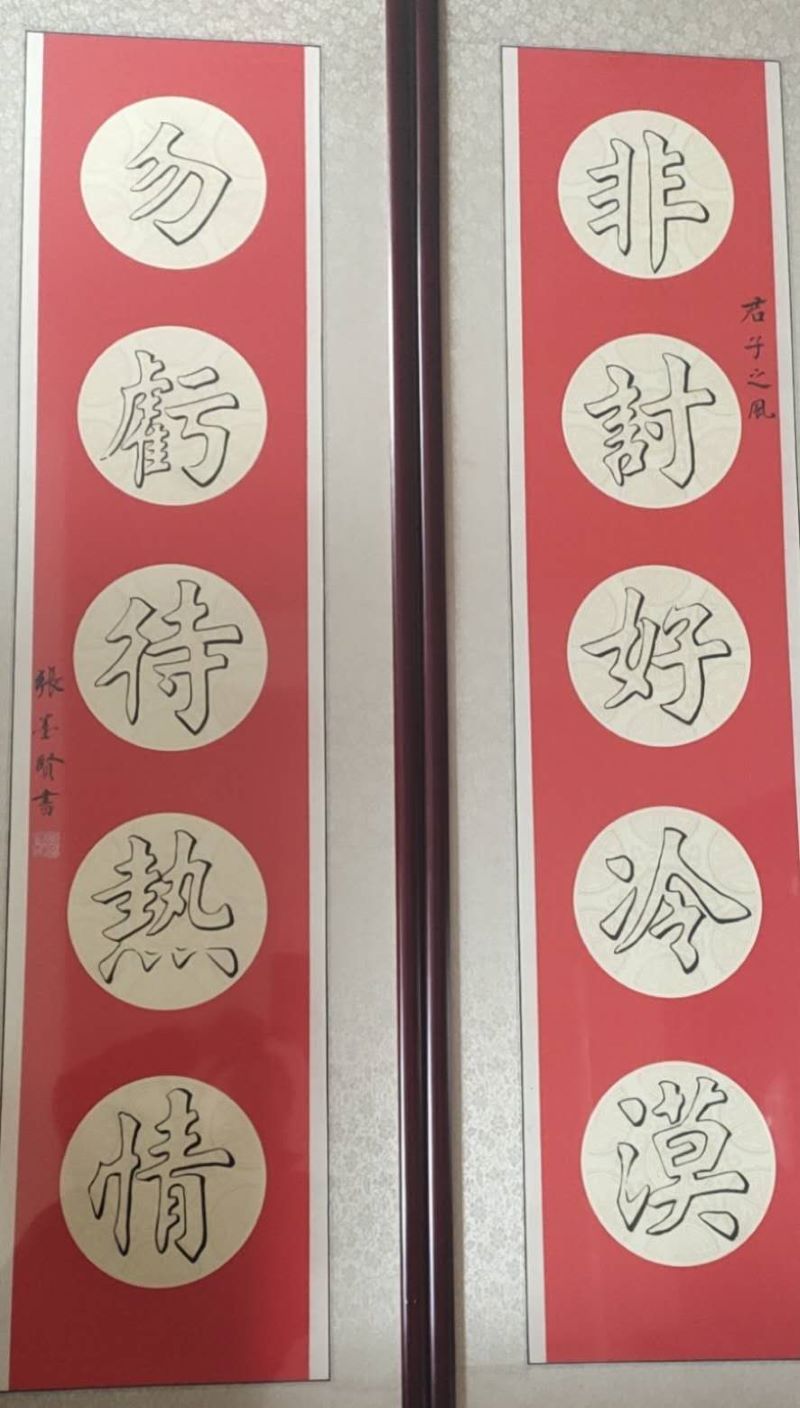 君子之風
非討好冷漠
勿虧待熱情
張墨賢書